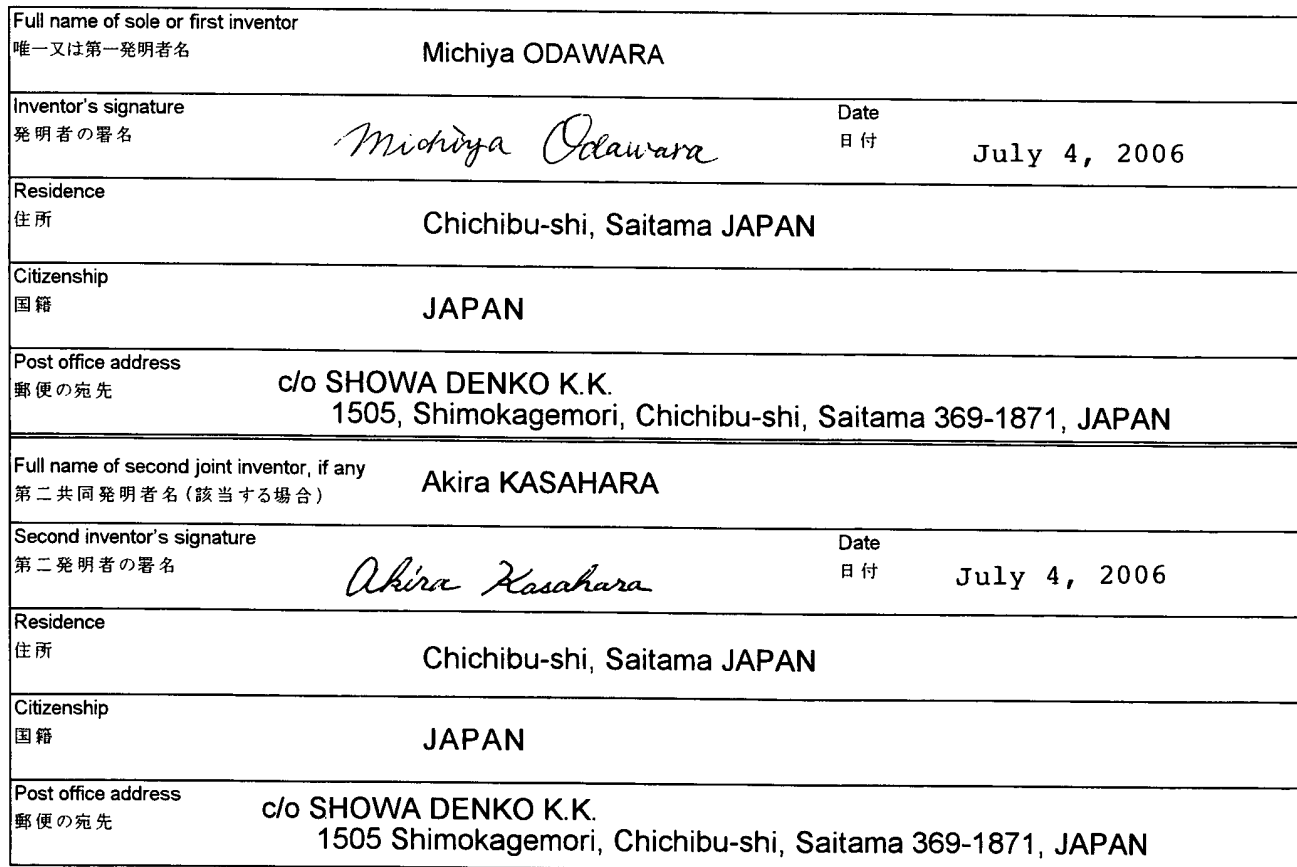 Full name of sole or first inventor
唯一又は第一発明者名
Michiya ODAWARA
Inventor's signature
発明者の署名
Michiya Odawara
Date
日付
July 4, 2006
Residence
住所
Chichibu-shi, Saitama JAPAN
Citizenship
国籍
JAPAN
Post office address
郵便の宛先
c/o SHOWA DENKO K.K.
1505, Shimokagemori, Chichibu-shi, Saitama 369-1871, JAPAN
Full name of second joint inventor, if any
第二共同発明者名(該当する場合)
Akira KASAHARA
Second inventor's signature
第二発明者の署名
Akira Kasahara
Date
日付
July 4, 2006
Residence
住所
Chichibu-shi, Saitama JAPAN
Citizenship
国籍
JAPAN
Post office address
郵便の宛先
c/o SHOWA DENKO K.K.
1505 Shimokagemori, Chichibu-shi, Saitama 369-1871, JAPAN